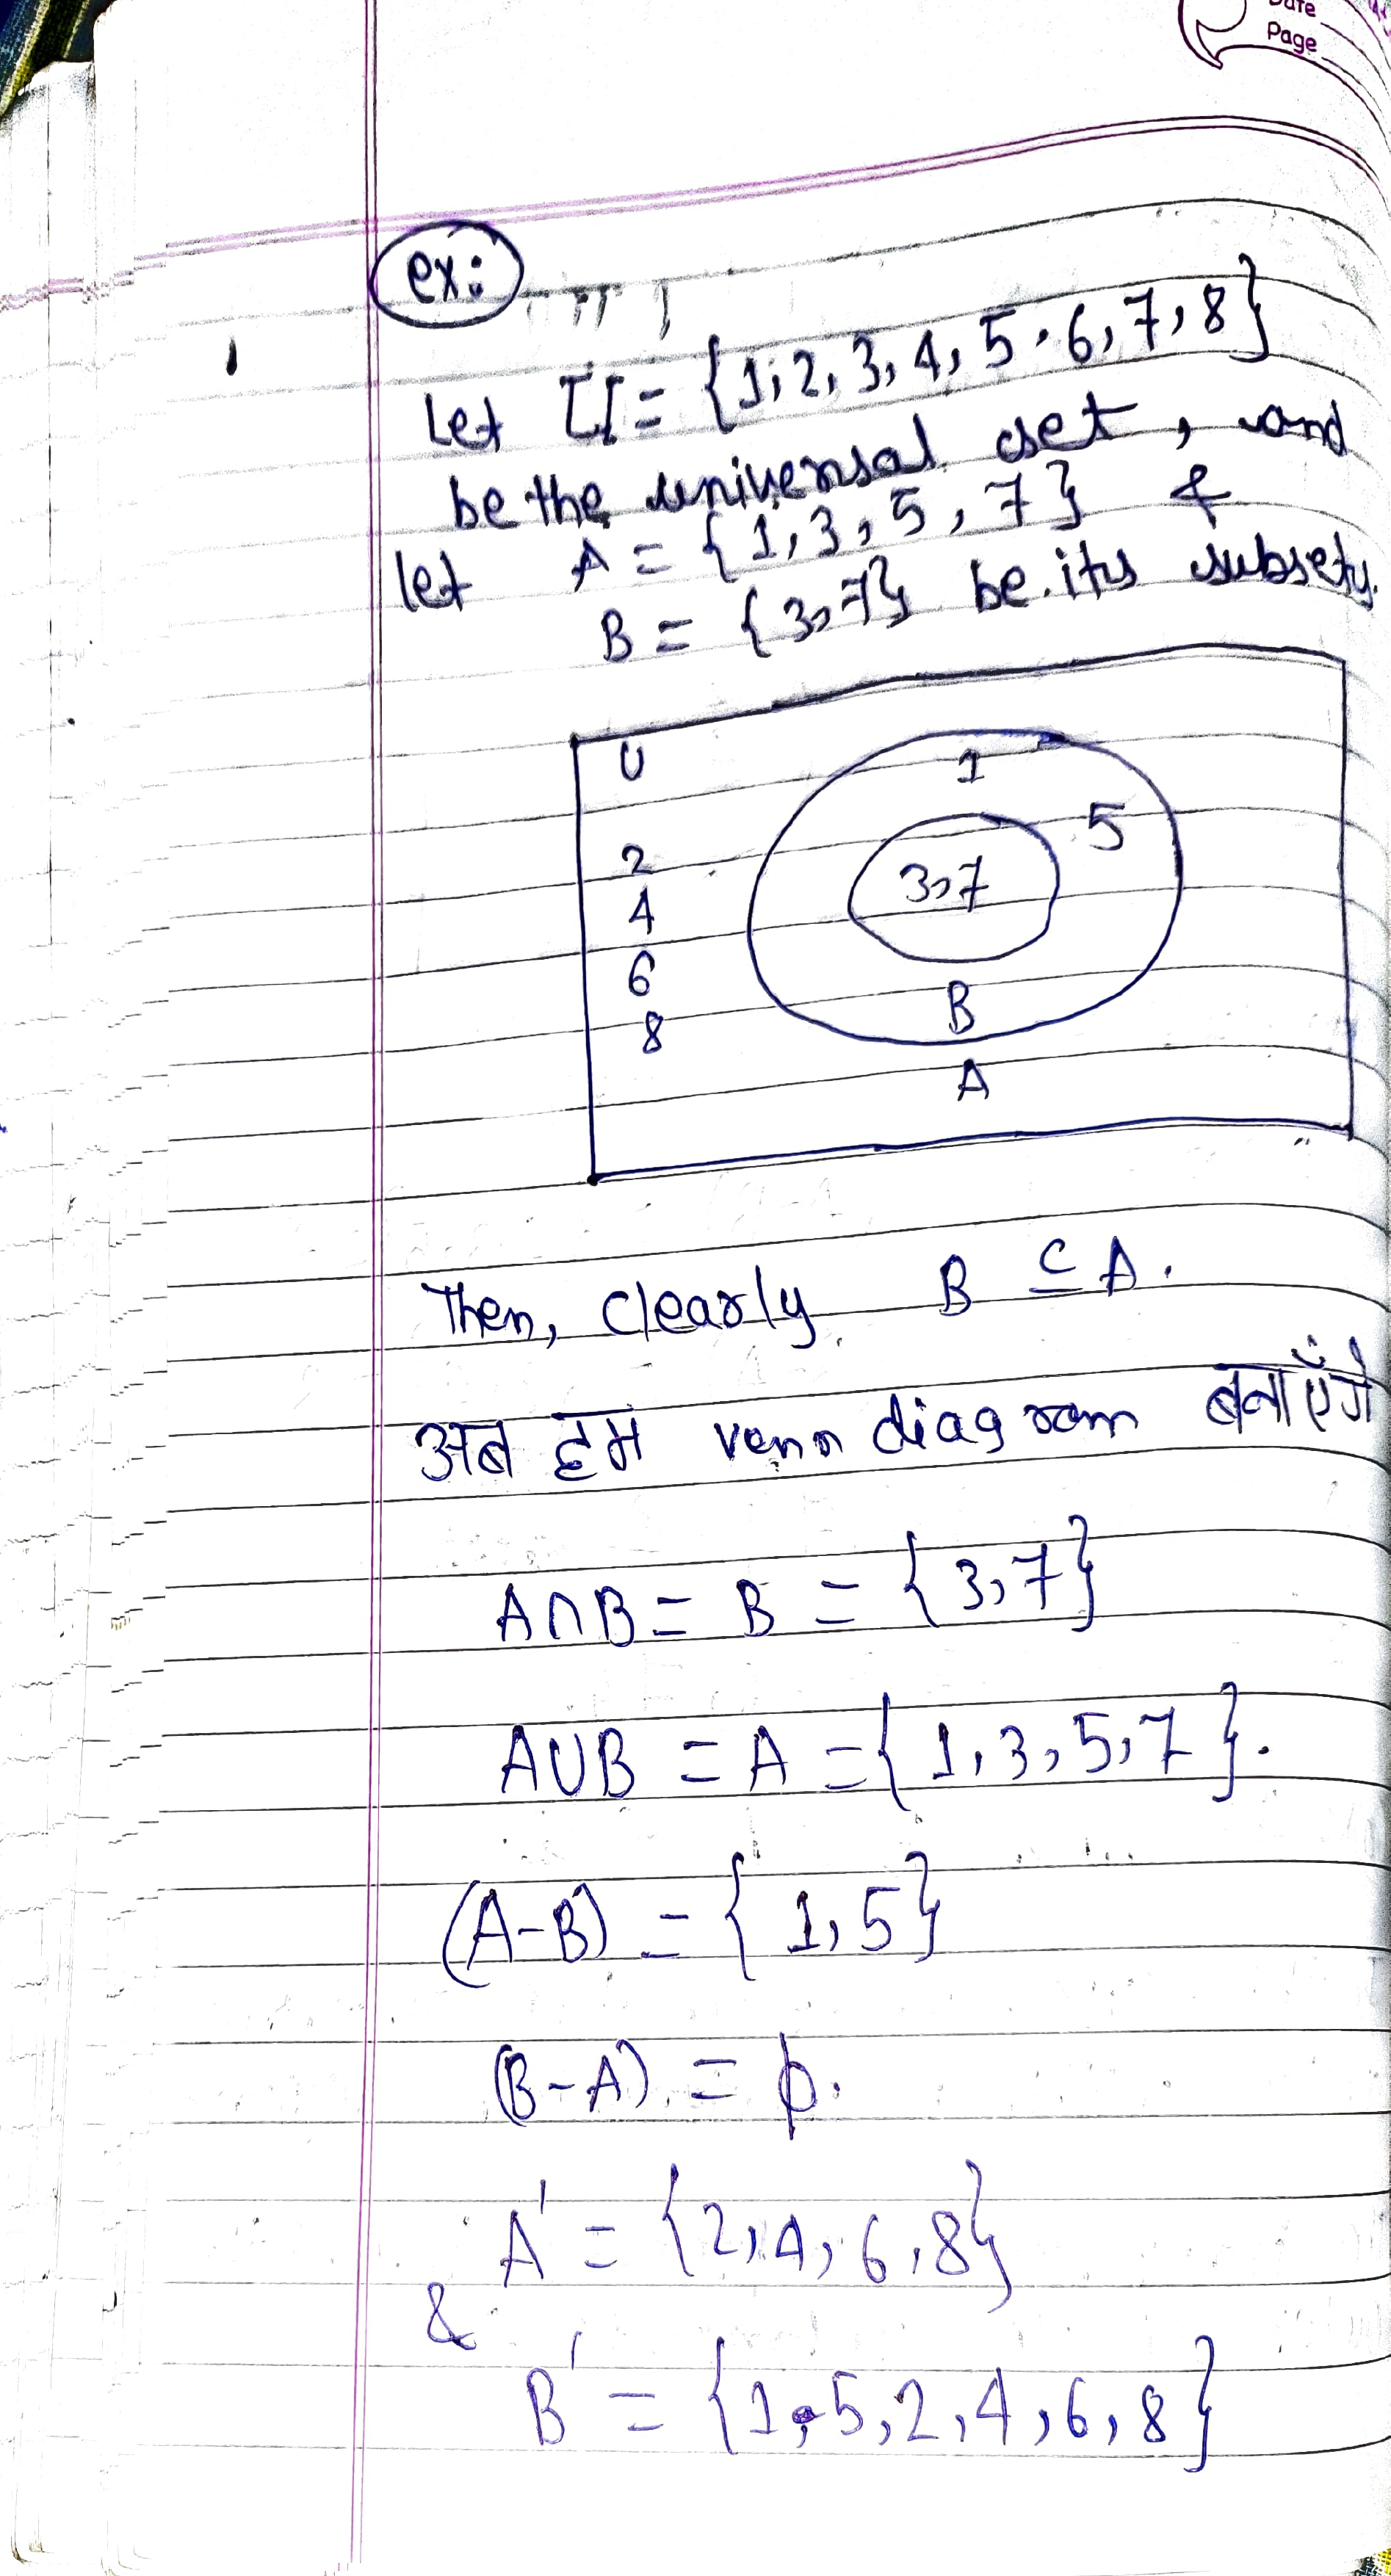 Date
Page
ex:
Let U = {1, 2, 3, 4, 5, 6, 7, 8}
be the universal set, and
let A = {1, 3, 5, 7} &
B = {3, 7} be its subsets.
U
1
5
2
3,7
4
6
B
8
A
Then, clearly B ⊆ A.
अब हम venn diagram बनाएँगे
A∩B = B = {3, 7}
A∪B = A = {1, 3, 5, 7}.
(A-B) = {1, 5}
(B-A) = ϕ.
A' = {2, 4, 6, 8}
&
B' = {1, 5, 2, 4, 6, 8}